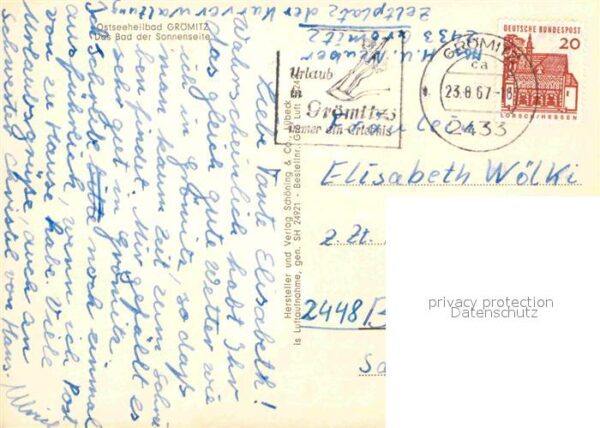 Ostseeheilbad GRÖMITZ
Das Bad der Sonnenseite
Zeltplatz der Kurverwaltung
2433 Grömitz
H. u. 
Liebe Tante Elisabeth!
Wahrscheinlich habt Ihr
das gleich gute Wetter wie
Grömitz, so daß
man kaum Zeit zum Schrei-
ben findet. Mir gefällt es
sehr gut in Grömitz.
Ich würde bitte noch einmal
ausführlich, wenn ich Post
von zu Hause habe. Viele
Grüße, auch an
Schwester Christel von Hans-
Ulrich
Hersteller und Verlag Schöning & Co., Lübeck
is Luftaufnahme, gen. SH 24921 - Bestellnr. Grö Luft
Urlaub
in
Grömitz
immer ein Erlebnis
GRÖMITZ
ca
23.8.67-18
2433
DEUTSCHE BUNDESPOST
20
LORSCH/HESSEN
Fräulein
Elisabeth Wölki
z. Zt.
2448/B
privacy protection
Datenschutz